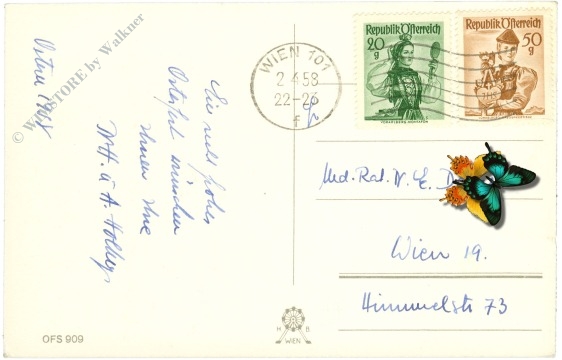 Ostern 1958
© WebSTORE by Walkner
Ein recht frohes
Osterfest wünschen
Ihnen Ihre
WIEN 101
2.4.58
22-23
f
Republik Österreich
20
g
VORARLBERG, MONTAFON
Republik Österreich
50
g
Med. Rat. W. E. D
Wien 19.
Himmelstr 73
OFS 909
H B
WIEN